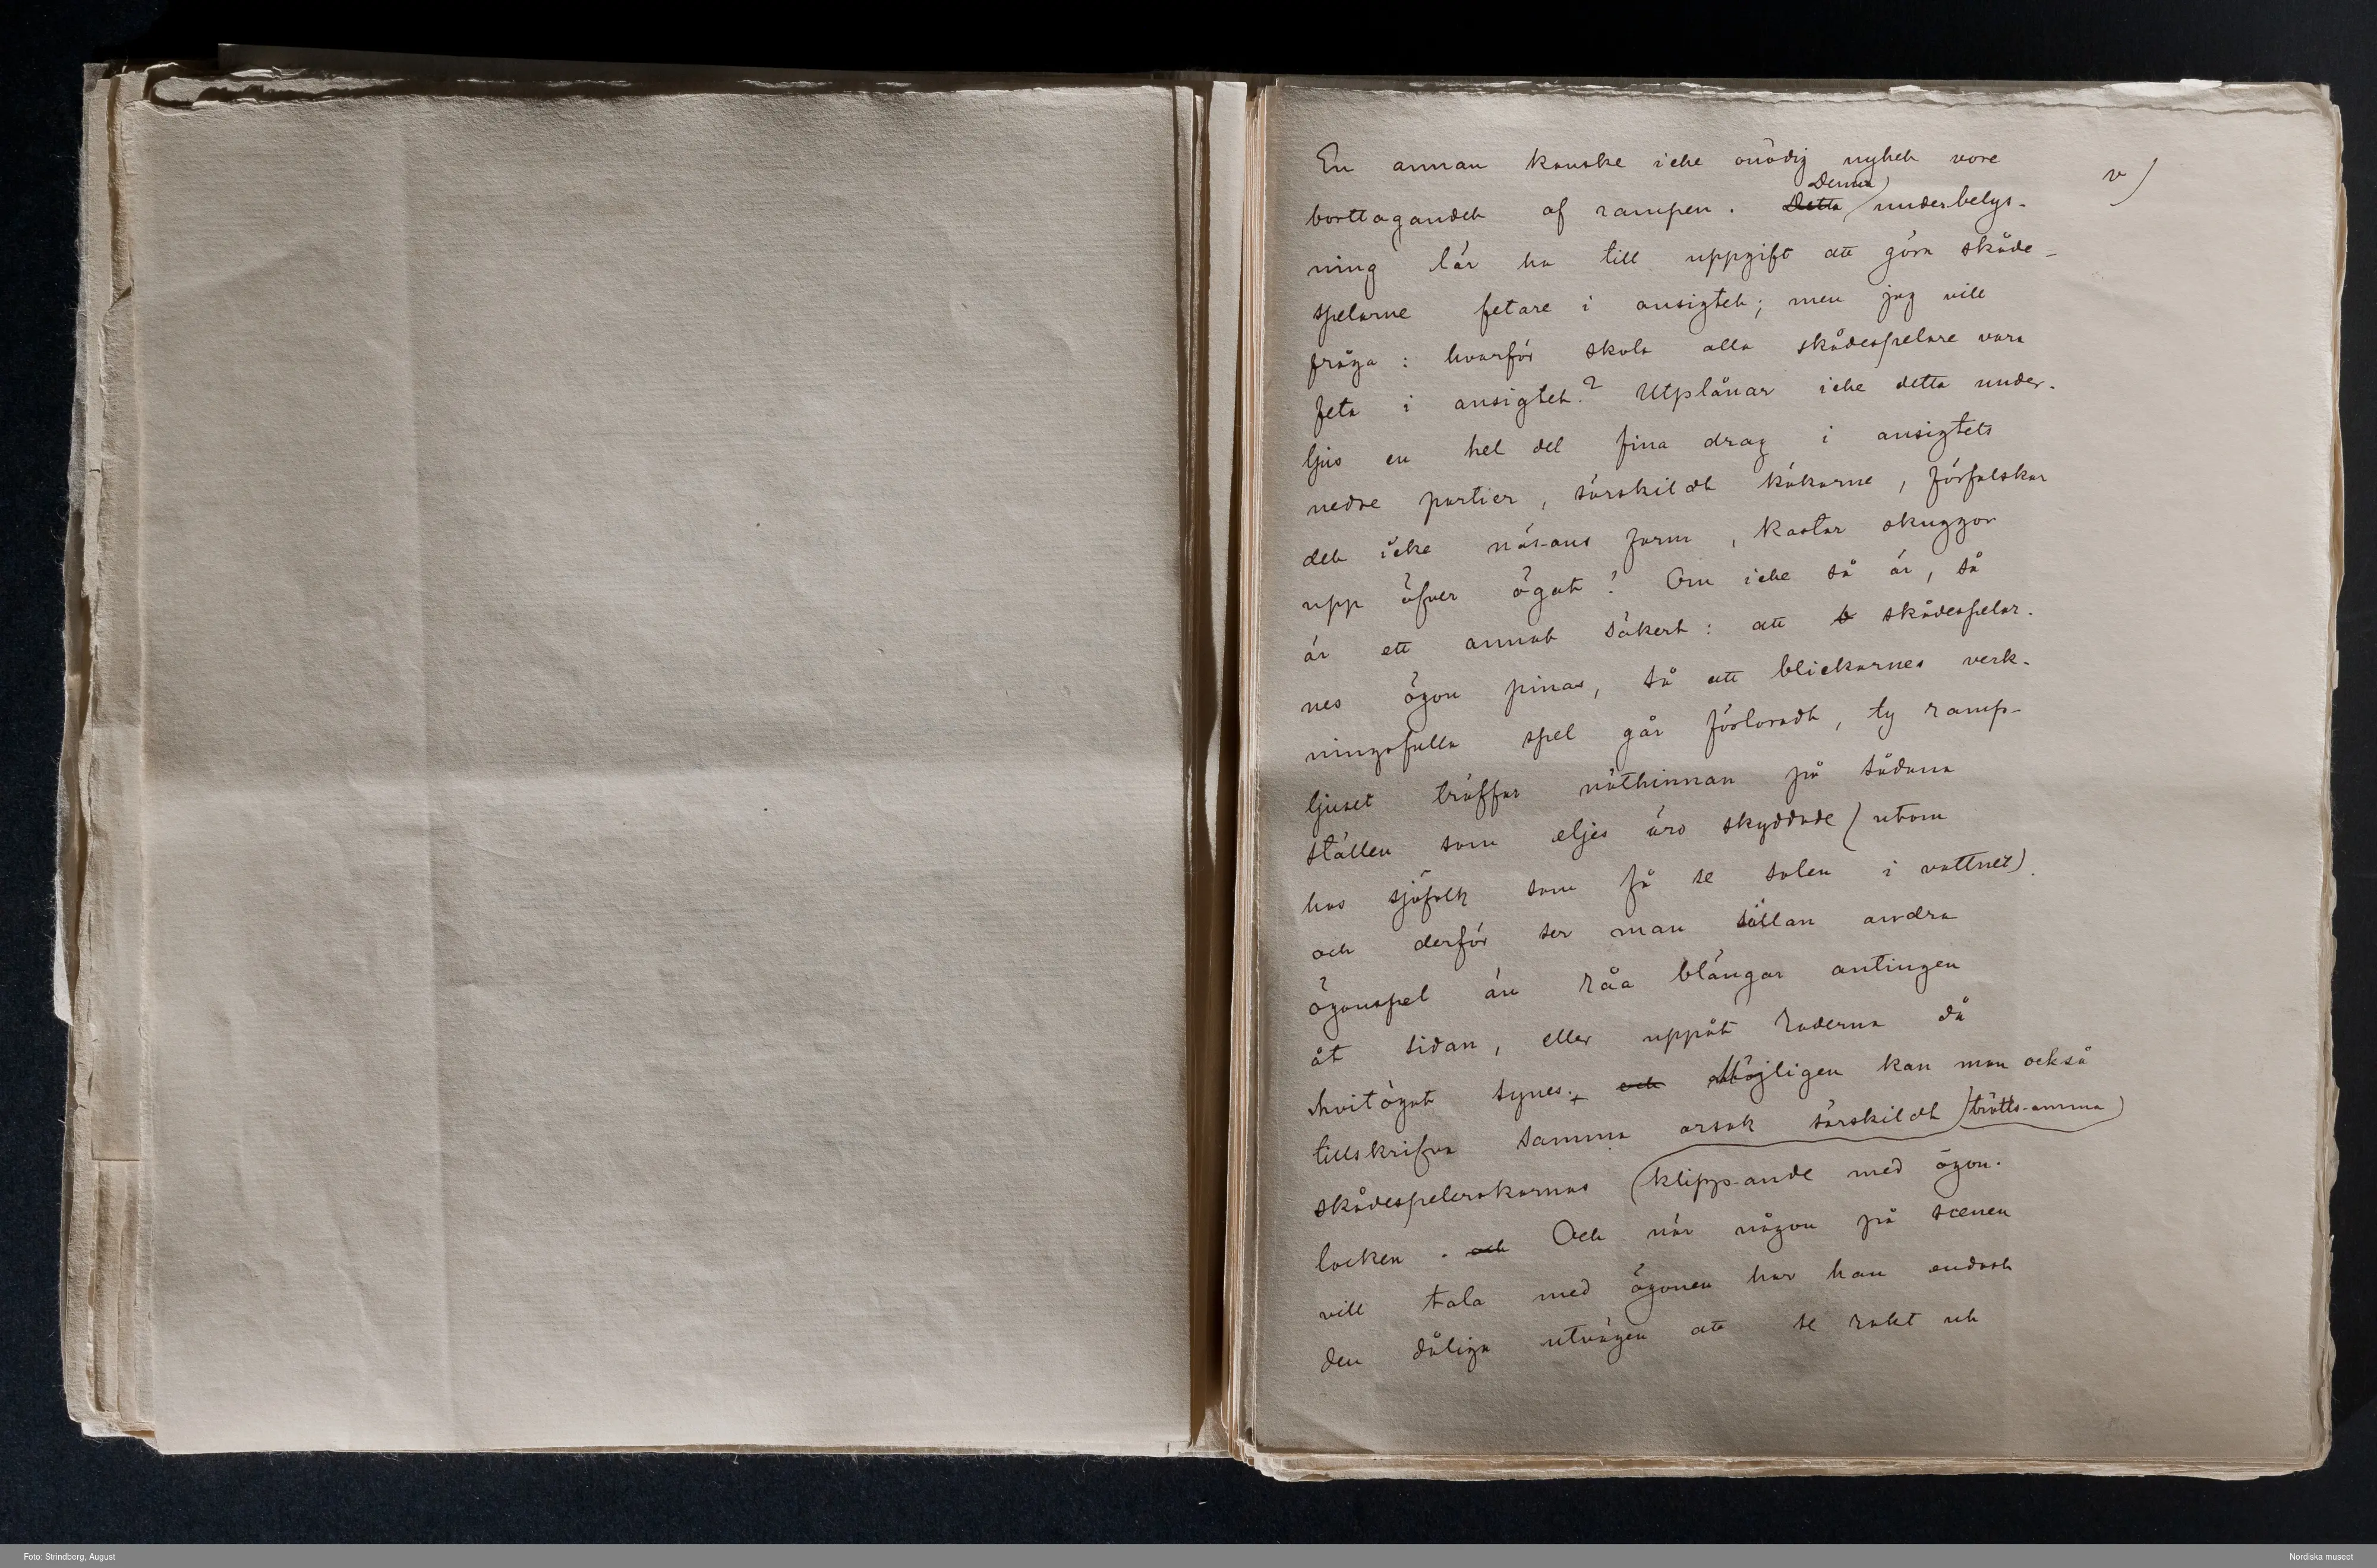 En annan kanske icke onödig nyhet vore
v)
Denna
borttagandet af rampen. Detta underbelys-
ning lär ha till uppgift att göra skåde-
spelarne fetare i ansigtet; men jag vill
fråga: hvarför skola alla skådespelare vara
feta i ansigtet? Utplånar icke detta under-
ljus en hel del fina drag i ansigtets
nedre partier, särskildt käkarne, förfalskar
det icke näsans form, kastar skuggor
upp öfver ögat? Om icke så är, så
är ett annat säkert: att skådespelar-
nes ögon pinas, så att blickarnes verk-
ningsfulla spel går förloradt, ty ramp-
ljuset träffar näthinnan på sådana
ställen som eljes äro skyddade (utom
hos sjöfolk som få se solen i vattnet)
och derför ser man sällan andra
ögonspel än råa blängar antingen
åt sidan, eller uppåt raderna då
hvitögat synes. och Möjligen kan man också
tillskrifva samma orsak särskildt trötts-amma
skådespelerskornas klipp-ande med ögon-
locken. och Och när någon på scenen
vill tala med ögonen har han endast
den dåliga utvägen att se rakt ut
Foto: Strindberg, August
Nordiska museet